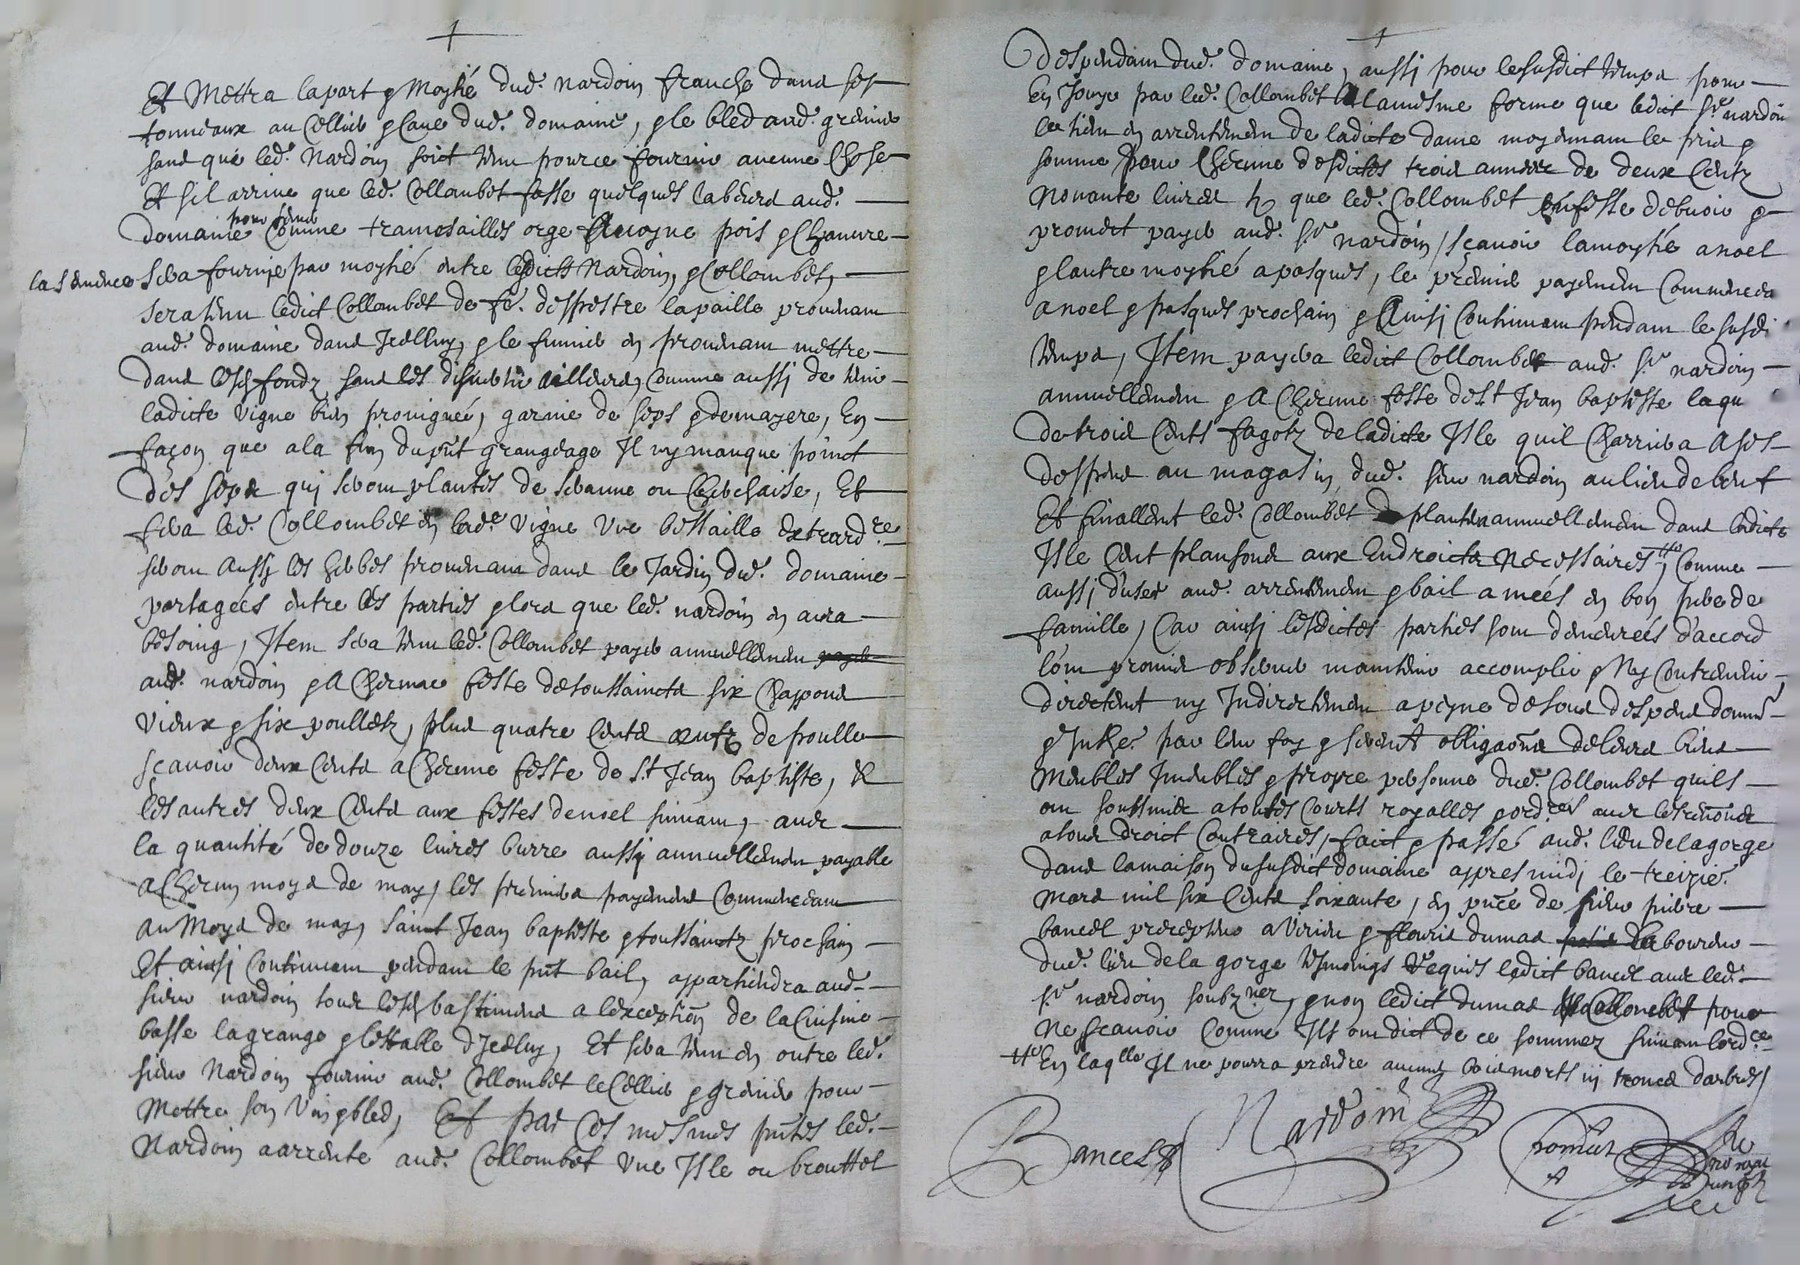 Et Mettra la part & Moytié dud. nardoin franche dans ses
tonneaux au Cellier & Cave dud. domaine, & le bled aud. grenier
sans que led. Nardoin soict tenu pour ce fournir aucune Chose
Et s'il arrive que led. Collombet fasse quelques labeurs aud.
pour semer
domaine Comme tramesailles orge Avoyne pois & Chanvre
la semence sera fournye par moytié entre lesdicts Nardoin & Collombet,
sera tenu ledict Collombet de fe. despestre la paille provenant
aud. domaine dans Icelluy & le fumier en provenant mettre
dans lesd. fondz sans les divertir ailleurs, Comme aussi de tenir
ladicte vigne bien provignée, garnie de seps & de mayere, En
façon que a la fin du pnt grangeage Il n'y manque poinct
des seps qui seront plantés de
fera led. Collombet en lad. vigne Une
seront Aussy les herbes provenant dans le Jardin dud. domaine
partagées entre les parties & lors que led. nardoin en aura
besoing, Item sera tenu led. Collombet payer annuellement
aud. nardoin & a Chacune feste de toussaincts six Chappons
Vieux & six poulletz, plus quatre Cents œufz de poulle
sçavoir deux Cents a Chacune feste de St Jean baptiste, &
les autres deux Cents aux festes de noel suivant, avec
la quantité de douze livres burre aussy annuellement payable
a Chacun moys de may, les premiers payements Commencant
au Moys de may, Saint Jean baptiste & toussainctz prochain
Et ainsi Continuant pendant le pnt bail, appartiendra aud.
sieur nardoin tous lesd. bastiments a l'exception de la Cuisine
basse la grange & l'estable d'Icelluy, Et sera tenu en outre led.
sieur Nardoin fournir aud. Collombet le Cellier & Grenier pour
Mettre son Vin & bled, Et par Ces mesmes pntes led.
Nardoin a arrenté aud. Collombet Une Isle ou brouttet
despendant dud. domaine, aussi pour le susdict temps pour
En Jouyr par led. Collombet A la mesme forme que ledict Sr nardoin
la tient en arrentement de ladicte dame moyennant le prix &
somme pour Chacune desdictes trois années de deux Centz
Nonante livres tz que led. Collombet
promect payer aud. Sr nardoin, sçavoir la moytié a noel
& l'autre moytié a pasques, le premier payement Commencera
a noel & pasques prochain & Ainsi Continuant pendant le susdi
temps, Item payera ledict Collombet aud. Sr nardoin
annuellement & A Chacune feste de St Jean baptiste la qu
de trois Cents fagotz de ladicte Isle qu'il Charriera A ses
despens au magasin dud. sieur nardoin au lieu de
Et finallemt led. Collombet plantera annuellement dans ladicte
Isle Cent plansons aux Endroicts Necessaires, Comme
aussi d'user aud. arrentement & bail a mées en bon pere de
famille, Car ainsi lesdictes parties sont demeurées d'accord
l'ont promis observer maintenir accomplir & N'y Contrevenir,
directemt ny Indirectement a peyne de tous despens domm
& Inthe. par leur foy & sermt obligaons de leurs biens
Meubles Immeubles & propre personne dud. Collombet qu'ils
ont soubsmis a toutes Courts royalles & ordres avec les renons
a tous droict Contraires, faict & passé aud. lieu de la gorge
dans la maison du susdict domaine appres midi le treizie.
Mars mil six Cents soixante, en pnce de sieur pierre
bancel precepteur a Virieu & fleuris dumas laboureur
dud. lieu de la gorge tesmoings Requis ledict bancel avec led.
Sr nardoin soubznez, & non ledict dumas ny Collombet pour
Ne sçavoir Comme Ils ont dict de ce sommez suivant l'ordce
En laqlle Il ne pourra prendre aucuns bois morts ny troncs d'arbres
Bancel Nardoin